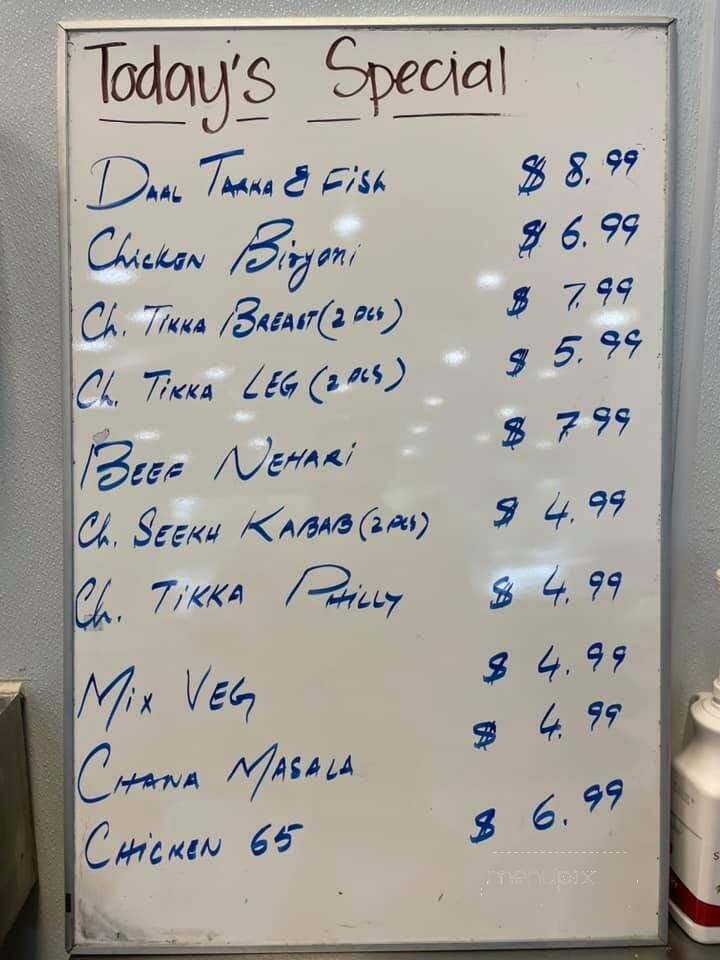 Today's Special
Daal Tarka & Fish $ 8.99
Chicken Biryani $ 6.99
Ch. Tikka Breast (2 pcs) $ 7.99
Ch. Tikka Leg (2 pcs) $ 5.99
Beef Nehari $ 7.99
Ch. Seekh Kabab (2 pcs) $ 4.99
Ch. Tikka Philly $ 4.99
Mix Veg $ 4.99
Chana Masala $ 4.99
Chicken 65 $ 6.99
menupix